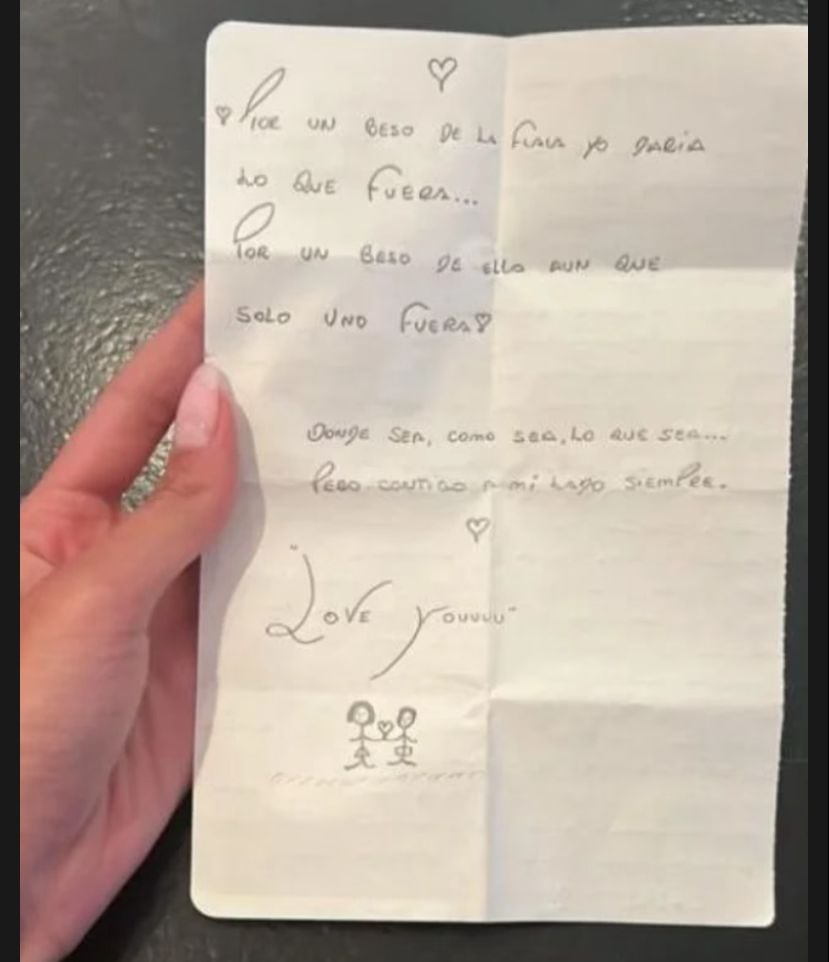 Por un beso de la flaca yo daria
lo que fuera...
Por un beso de ella aun que
solo uno fuera
Donde sea, como sea, lo que sea...
Pero contigo a mi lado siempre.
"Love youuuu"